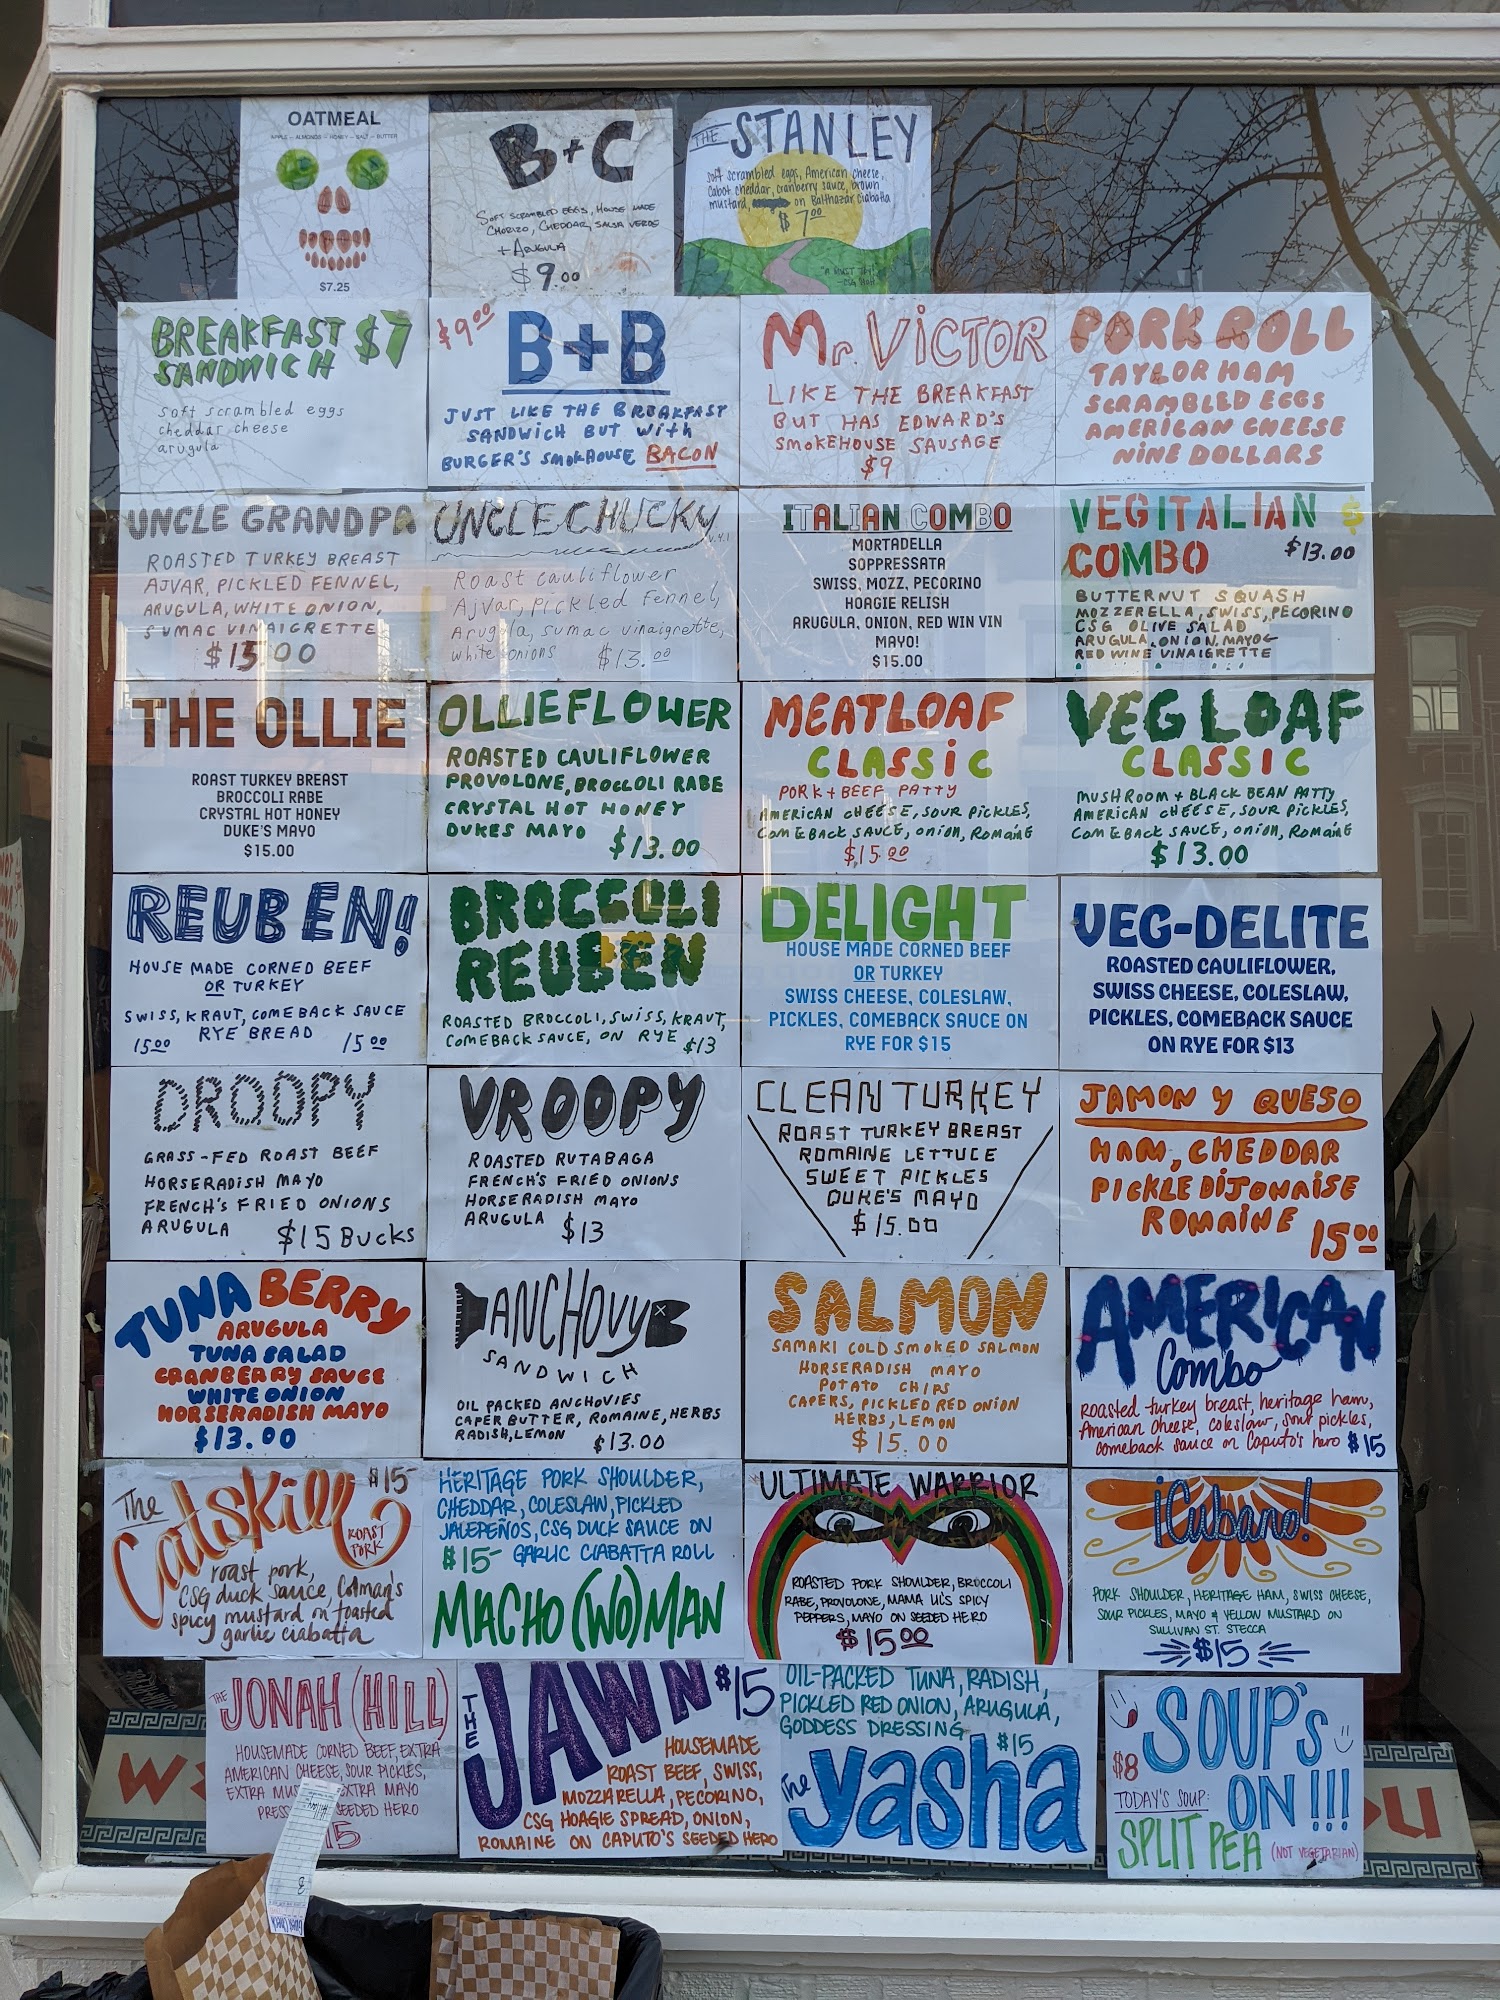 OATMEAL
APPLE - ALMONDS - HONEY - SALT - BUTTER
$7.25
B+C
SOFT SCRAMBLED EGGS, HOUSE MADE
CHORIZO, CHEDDAR, SALSA VERDE
+ ARUGULA
$9.00
THE STANLEY
soft scrambled eggs, American cheese,
Cabot cheddar, cranberry sauce, brown
mustard, on Balthazar Ciabatta
$7.00
BREAKFAST $7
SANDWICH
soft scrambled eggs
cheddar cheese
arugula
$9.00
B+B
JUST LIKE THE BREAKFAST
SANDWICH BUT WITH
BURGER'S SMOKHOUSE BACON
Mr. VICTOR
LIKE THE BREAKFAST
BUT HAS EDWARD'S
SMOKEHOUSE SAUSAGE
$9
PORK ROLL
TAYLOR HAM
SCRAMBLED EGGS
AMERICAN CHEESE
NINE DOLLARS
UNCLE GRANDPA
ROASTED TURKEY BREAST
AJVAR, PICKLED FENNEL,
ARUGULA, WHITE ONION,
SUMAC VINAIGRETTE
$15.00
UNCLE CHUCKY
V.4.1
Roast cauliflower
Ajvar, pickled fennel,
Arugula, sumac vinaigrette,
white onions $13.00
ITALIAN COMBO
MORTADELLA
SOPPRESSATA
SWISS, MOZZ, PECORINO
HOAGIE RELISH
ARUGULA, ONION, RED WIN VIN
MAYO!
$15.00
VEGITALIAN $
COMBO $13.00
BUTTERNUT SQUASH
MOZZERELLA, SWISS, PECORINO
CSG OLIVE SALAD
ARUGULA, ONION, MAYO &
RED WINE VINAIGRETTE
THE OLLIE
ROAST TURKEY BREAST
BROCCOLI RABE
CRYSTAL HOT HONEY
DUKE'S MAYO
$15.00
OLLIEFLOWER
ROASTED CAULIFLOWER
PROVOLONE, BROCCOLI RABE
CRYSTAL HOT HONEY
DUKES MAYO $13.00
MEATLOAF
CLASSIC
PORK + BEEF PATTY
AMERICAN CHEESE, SOUR PICKLES,
COMEBACK SAUCE, ONION, ROMAINE
$15.00
VEG LOAF
CLASSIC
MUSHROOM + BLACK BEAN PATTY
AMERICAN CHEESE, SOUR PICKLES,
COMEBACK SAUCE, ONION, ROMAINE
$13.00
REUBEN!
HOUSE MADE CORNED BEEF
OR TURKEY
SWISS, KRAUT, COMEBACK SAUCE
15.00 RYE BREAD 15.00
BROCCOLI
REUBEN
ROASTED BROCCOLI, SWISS, KRAUT,
COMEBACK SAUCE, ON RYE $13
DELIGHT
HOUSE MADE CORNED BEEF
OR TURKEY
SWISS CHEESE, COLESLAW,
PICKLES, COMEBACK SAUCE ON
RYE FOR $15
VEG-DELITE
ROASTED CAULIFLOWER,
SWISS CHEESE, COLESLAW,
PICKLES, COMEBACK SAUCE
ON RYE FOR $13
DROOPY
GRASS-FED ROAST BEEF
HORSERADISH MAYO
FRENCH'S FRIED ONIONS
ARUGULA $15 BUCKS
VROOPY
ROASTED RUTABAGA
FRENCH'S FRIED ONIONS
HORSERADISH MAYO
ARUGULA $13
CLEAN TURKEY
ROAST TURKEY BREAST
ROMAINE LETTUCE
SWEET PICKLES
DUKE'S MAYO
$15.00
JAMON Y QUESO
HAM, CHEDDAR
PICKLE DIJONAISE
ROMAINE 15.00
TUNA BERRY
ARUGULA
TUNA SALAD
CRANBERRY SAUCE
WHITE ONION
HORSERADISH MAYO
$13.00
ANCHOVY
SANDWICH
OIL PACKED ANCHOVIES
CAPER BUTTER, ROMAINE, HERBS
RADISH, LEMON $13.00
SALMON
SAMAKI COLD SMOKED SALMON
HORSERADISH MAYO
POTATO CHIPS
CAPERS, PICKLED RED ONION
HERBS, LEMON
$15.00
AMERICAN
Combo
Roasted turkey breast, heritage ham,
American cheese, coleslaw, sour pickles,
comeback sauce on Caputo's hero $15
The Catskill $15-
ROAST
PORK
roast pork,
CSG duck sauce, Colman's
spicy mustard on toasted
garlic ciabatta
HERITAGE PORK SHOULDER,
CHEDDAR, COLESLAW, PICKLED
JALEPEÑOS, CSG DUCK SAUCE ON
$15- GARLIC CIABATTA ROLL
MACHO (WO)MAN
ULTIMATE WARRIOR
ROASTED PORK SHOULDER, BROCCOLI
RABE, PROVOLONE, MAMA LIL'S SPICY
PEPPERS, MAYO ON SEEDED HERO
$15.00
¡Cubano!
PORK SHOULDER, HERITAGE HAM, SWISS CHEESE,
SOUR PICKLES, MAYO & YELLOW MUSTARD ON
SULLIVAN ST. STECCA
$15
THE JONAH (HILL)
HOUSEMADE CORNED BEEF, EXTRA
AMERICAN CHEESE, SOUR PICKLES,
EXTRA EXTRA MAYO
SEEDED HERO
THE JAWN $15
HOUSEMADE
ROAST BEEF, SWISS,
MOZZARELLA, PECORINO,
CSG HOAGIE SPREAD, ONION,
ROMAINE ON CAPUTO'S SEEDED HERO
OIL-PACKED TUNA, RADISH,
PICKLED RED ONION, ARUGULA,
GODDESS DRESSING $15
The yasha
SOUP'S
$8 ON!!!
TODAY'S SOUP:
SPLIT PEA (NOT VEGETARIAN)